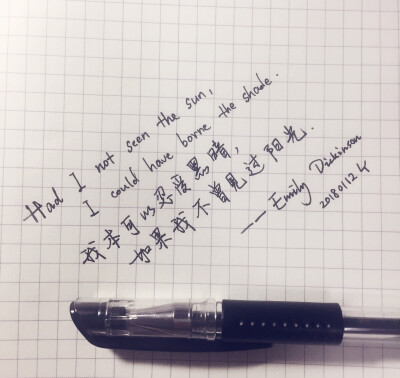 Had I not seen the sun,
I could have borne the shade.
我本可以忍受黑暗,
如果我不曾见过阳光.
—— Emily Dickinson
20180112